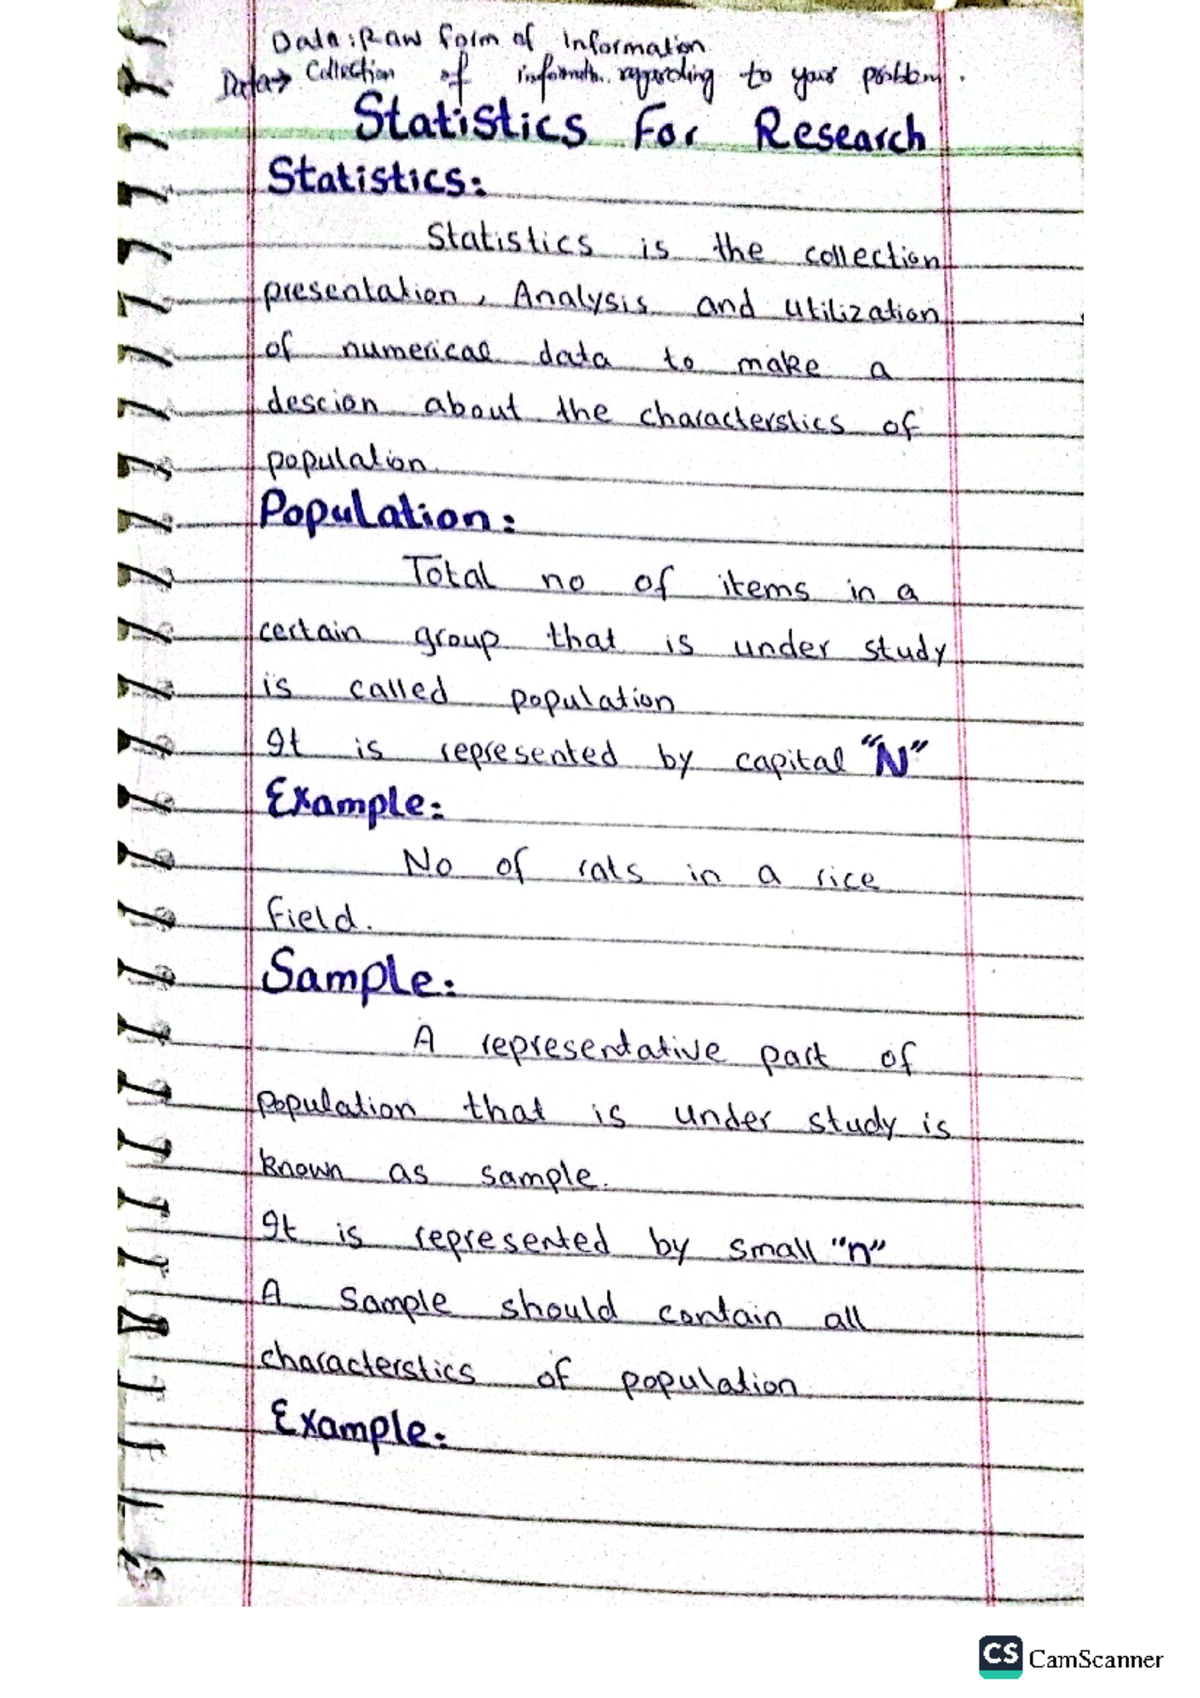 Data: Raw form of information
Data → Collection of informatn. regarding to your problem.
Statistics For Research
Statistics:
Statistics is the collection
presentation, Analysis and utilization
of numerical data to make a
descion about the characterstics of
population.
Population:
Total no of items in a
certain group that is under study
is called population
It is represented by capital "N"
Example:
No of rats in a rice
field.
Sample:
A representative part of
population that is under study is
known as sample.
It is represented by small "n"
A sample should contain all
characterstics of population
Example:
CS CamScanner